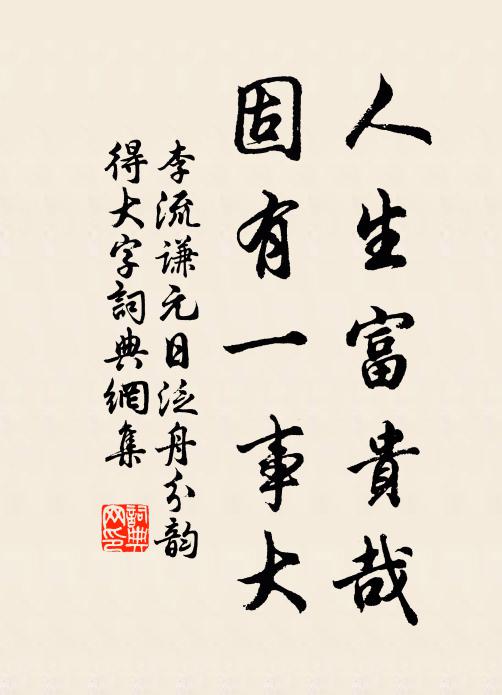 人生富貴哉
固有一事大
李流謙元日泛舟分韵
得大字詞典網集
詞典
网印